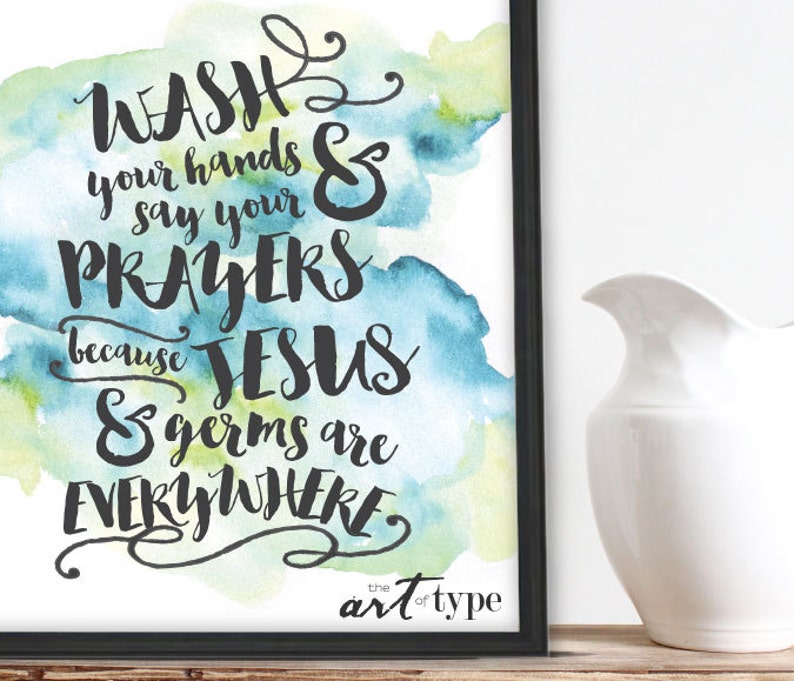 WASH
your hands &
say your
PRAYERS
because JESUS
& germs are
EVERYWHERE
the art of type